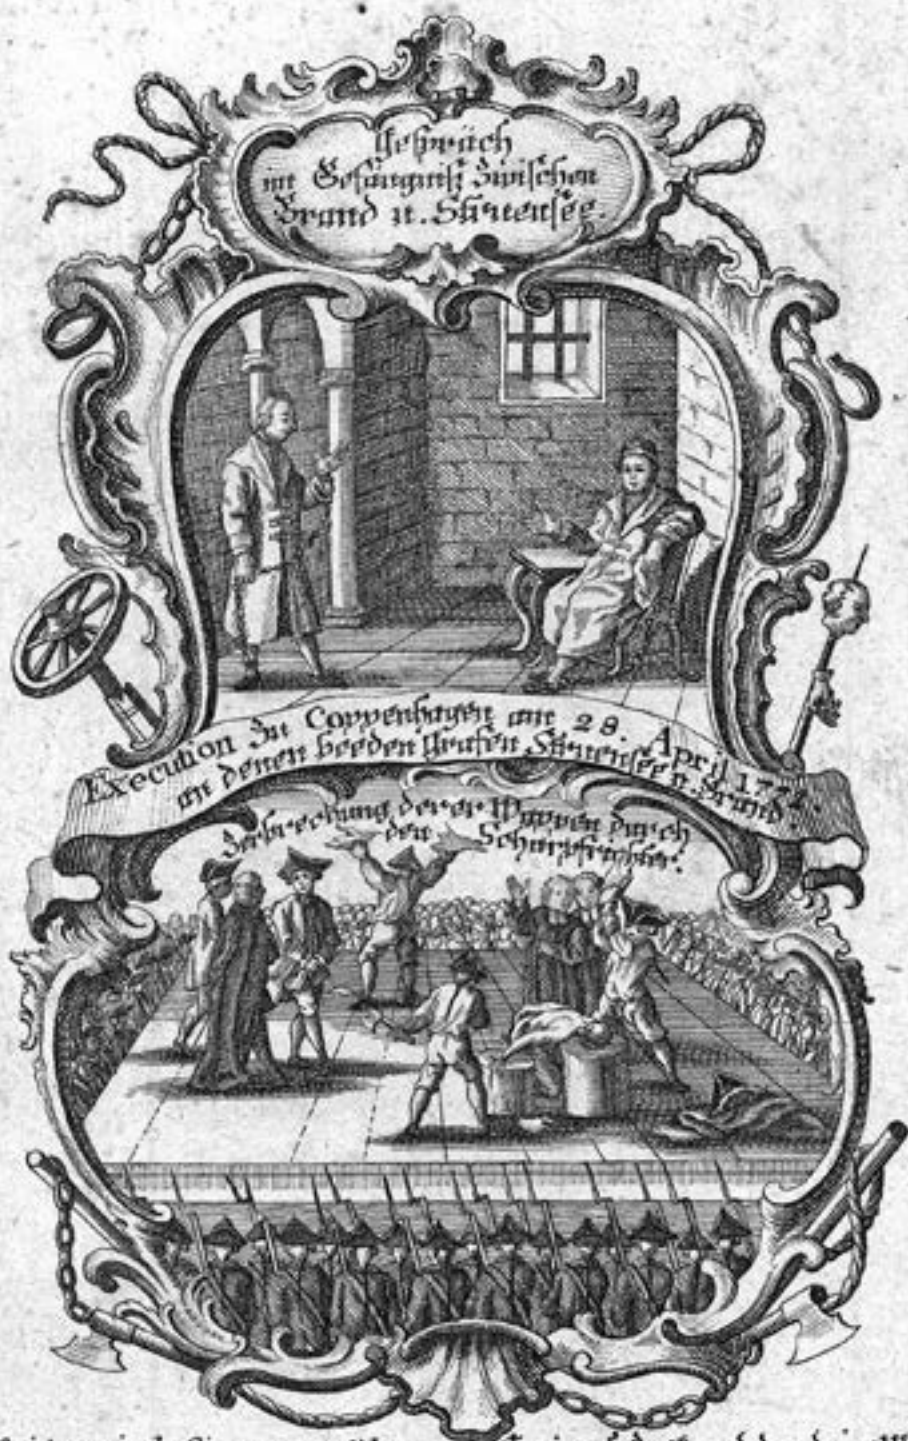 Gespräch
im Gefängniß zwischen
Brand u. Struensee.
Execution zu Coppenhagen am 28. April 1772.
an denen beeden Grafen Struensee u. Brand.
Zerbrechung derer Wappen durch
den Scharpfrichter.